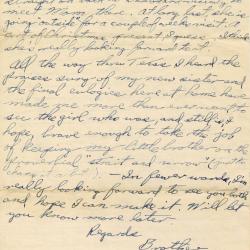 she's really looking forward to it.
All the way thru Texas I heard the
praises sung of my new sister and
the final eulogies here at home have
made me more than ever want to
see the girl who was, and still is, I
hope, brave enough to take the job
of keeping my little brother on the
proverbial "strait and narrow"
— In fewer words, I'm
really looking forward to see you both
and hope I can make it. Will let
you know more later.
Regards
Brother